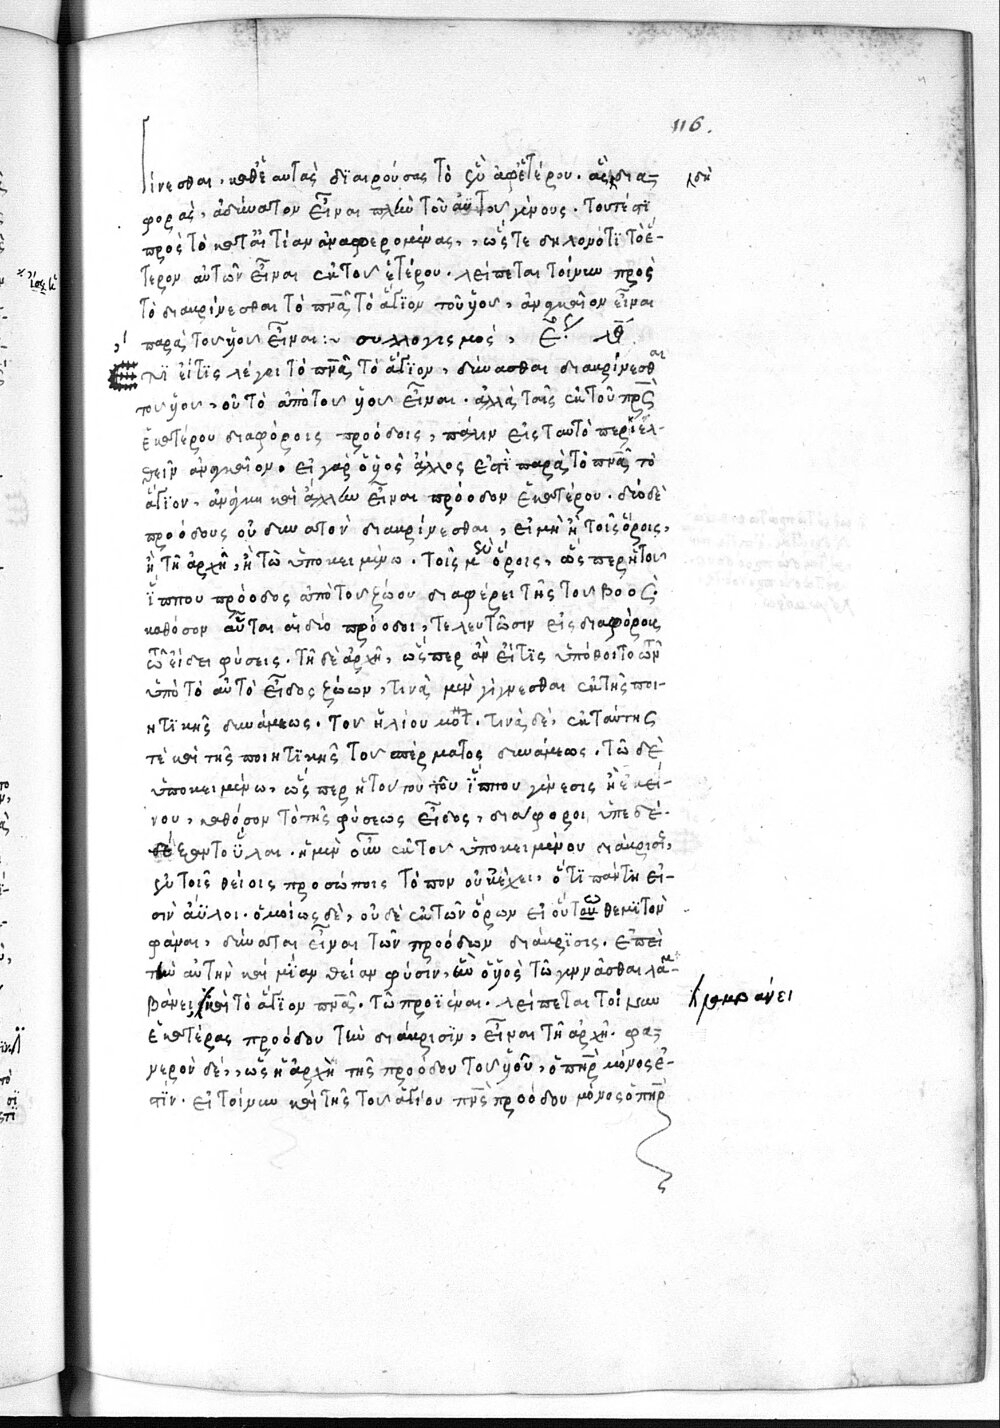 116.
γίνεσθαι, καθ' ἑαυτὰς διαιρούσας τὸ ἓν ἀφ' ἑτέρου. δια-
φορὰς, ἀδύνατον εἶναι πλὴν τοῦ αὐτοῦ γένους. τουτέστι
πρὸς τὸ κατ' αἰτίαν ἀναφερομένας, ὥστε δηλονότι τὸ ἕ-
τερον αὐτῶν εἶναι ἐκ τοῦ ἑτέρου. λείπεται τοίνυν πρὸς
τὸ διακρίνεσθαι τὸ πνα τὸ ἅγιον τοῦ υἱοῦ, ἀναγκαῖον εἶναι
παρὰ τοῦ υἱοῦ εἶναι :~ συλλογισμὸς,
εἴ τις λέγει τὸ πνα τὸ ἅγιον, δύνασθαι διακρίνεσθαι
τοῦ υἱοῦ, οὐ τὸ ἀπὸ τοῦ υἱοῦ εἶναι. ἀλλὰ ταῖς ἐκ τοῦ πρς
ἑκατέρου διαφόροις προόδοις, πάλιν εἰς ταυτὸ περιελ-
θεῖν ἀναγκαῖον. εἰ γὰρ ὁ υἱὸς ἄλλος ἐστὶ παρὰ τὸ πνα τὸ
ἅγιον, ἀνάγκη καὶ ἄλλην εἶναι πρόοδον ἑκατέρου. δύο δὲ
προόδους οὐ δυνατὸν διακρίνεσθαι, εἰ μὴ ἢ τοῖς ὅροις,
ἢ τῇ ἀρχῇ, ἢ τῷ ὑποκειμένῳ. τοῖς μὲν οὖν ὅροις, ὥσπερ ἡ τοῦ
ἵππου πρόοδος ἀπὸ τοῦ ζώου διαφέρει τῆς τοῦ βοός.
καθόσον αὗται αἱ δύο πρόοδοι, τελευτῶσιν εἰς διαφόρους
τῷ εἴδει φύσεις. τῇ δὲ ἀρχῇ, ὥσπερ ἂν εἴ τις ὑπόθοιτο τῶν
ὑπὸ τὸ αὐτὸ εἶδος ζώων, τινὰ μὲν γίγνεσθαι ἐκ τῆς ποι-
ητικῆς δυνάμεως. τοῦ ἡλίου τινὰ δὲ, ἐκ ταύτης
τε καὶ τῆς ποιητικῆς τοῦ σπέρματος δυνάμεως. τῷ δὲ
ὑποκειμένῳ, ὥσπερ ἡ τουτουῒ τοῦ ἵππου γένεσις ἢ ἐκεί-
νου, καθόσον τὸ τῆς φύσεως εἶδος, διάφοροι ὑπεδέ-
ξαντο ὗλαι. ἡ μὲν οὖν ἐκ τοῦ ὑποκειμένου διάκρισις,
ἐν τοῖς θείοις προσώποις τόπον οὐκ ἔχει, ὅτι πάντῃ εἰ-
σὶν ἄϋλοι. ὁμοίως δὲ, οὐδὲ ἐκ τῶν ὅρων εἰ οὕτω θεμιτὸν
φάναι, δύναται εἶναι τῶν προόδων διάκρισις. ἐπεὶ
τὴν αὐτὴν καὶ μίαν θείαν φύσιν, ἣν ὁ υἱὸς τῷ γεννᾶσθαι λαμ-
βάνει, καὶ τὸ ἅγιον πνα. τῷ προϊέναι. λείπεται τοίνυν λαμβάνει
ἑκατέρας προόδου τὴν διάκρισιν, εἶναι τῇ ἀρχῇ. φα-
νερὸν δὲ, ὡς ἡ ἀρχὴ τῆς προόδου τοῦ υἱοῦ, ὁ πηρ μόνος ἐ-
στίν. εἰ τοίνυν καὶ τῆς τοῦ ἁγίου πνς προόδου μόνος ὁ πηρ